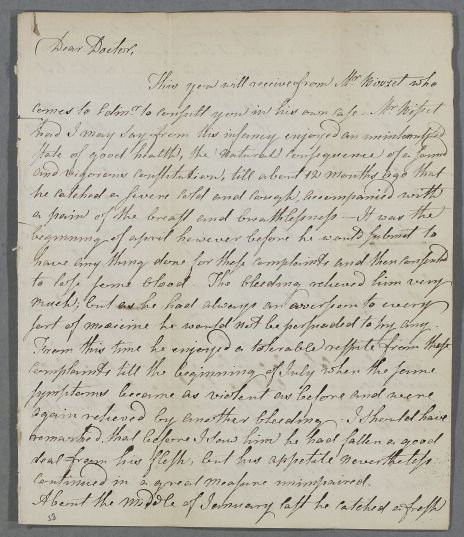 Dear Doctor,
This you will receive from Mr who
comes to Edinr. to consult you in his own case. Mr
had I may say from his infancy enjoyed an uninterrupted
state of good health, the natural consequence of a sound
and vigorous constitution, till about 12 months ago that
he catched a severe cold and cough, accompanied with
a pain of the breast and breathlessness – It was the
beginning of april however before he would submit to
have any thing done for those complaints and then consented
to lose some blood. The bleeding relieved him very
much, but as he had always an aversion to every
sort of medicine he would not be persuaded to try any.
From this time he enjoyed a tolerable respite from these
complaints till the beginning of July when the same
symptoms became as violent as before and were
again relieved by another bleeding. I should have
remarked, that before I saw him he had fallen a good
deal from his flesh, but his appetite nevertheless
continued in a great measure unimpaired.
About the middle of January last he catched a fresh
53